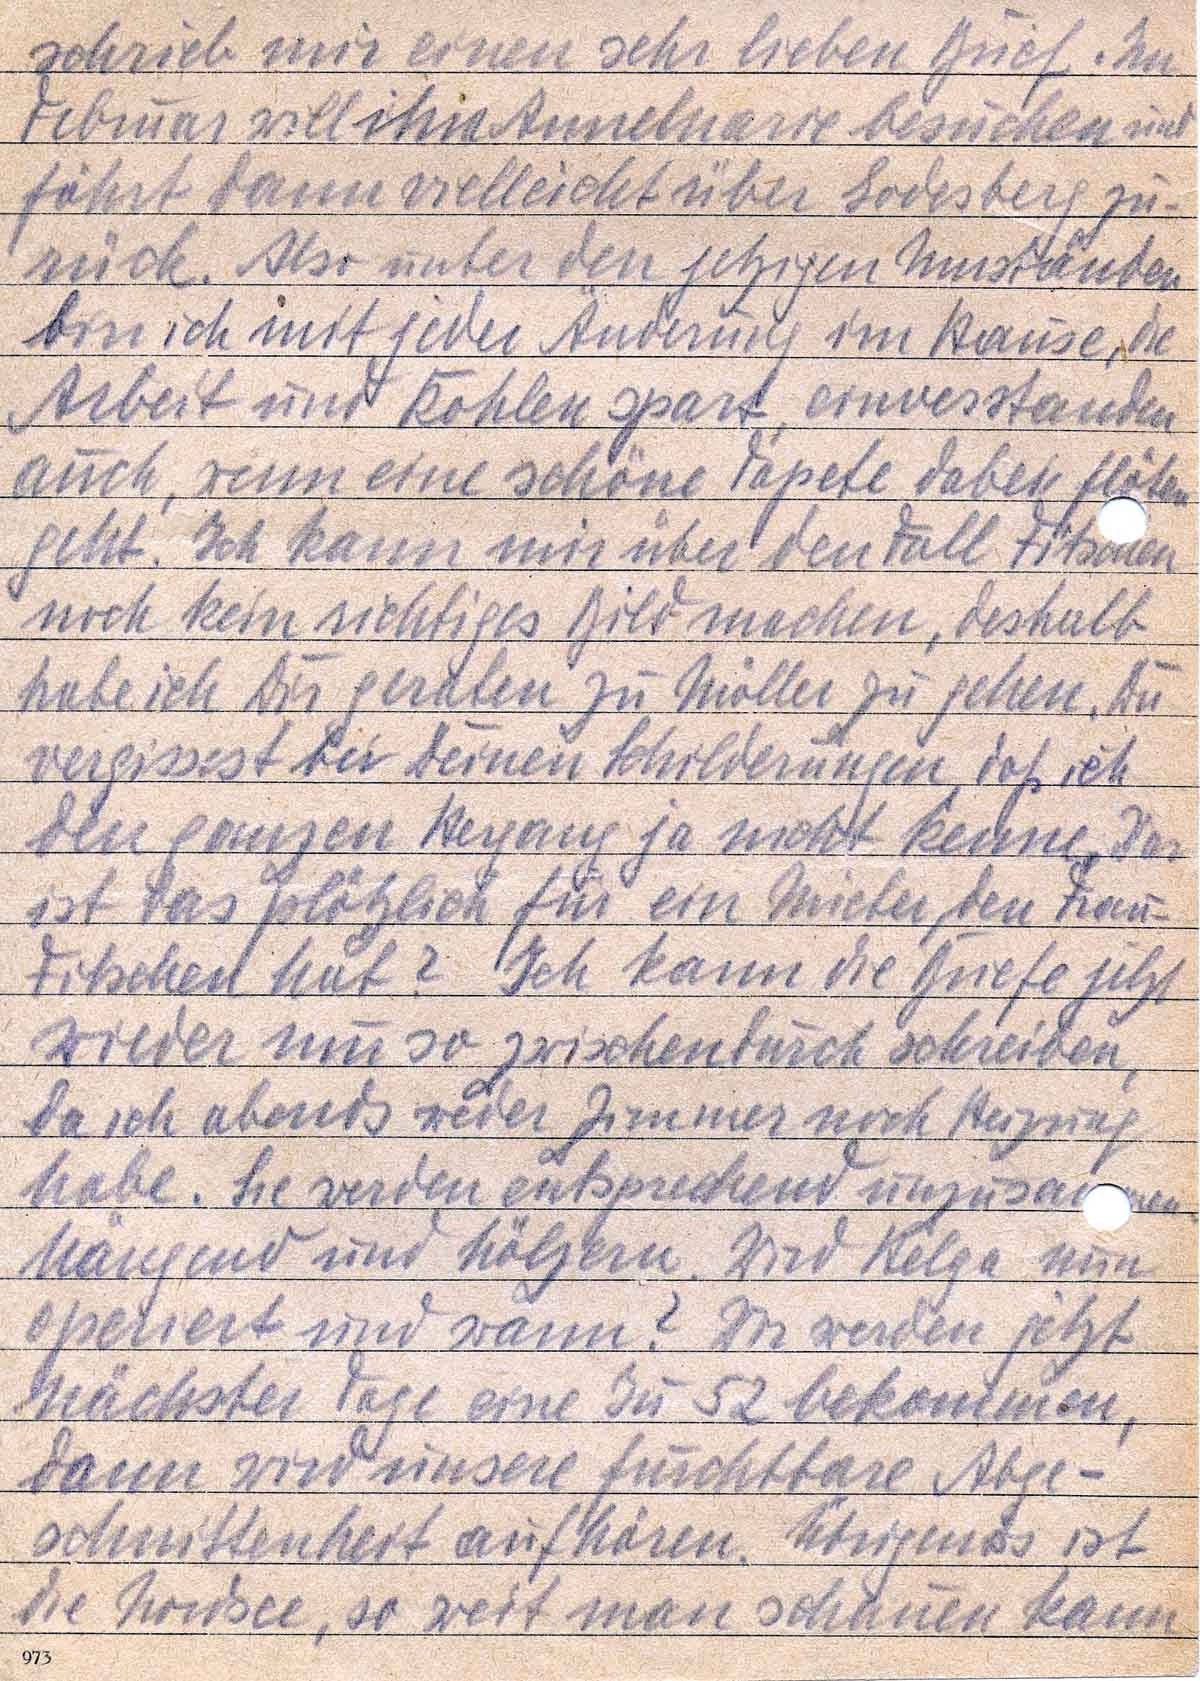 schrieb mir einen sehr lieben Brief. Im
Februar will ihn Annemarie besuchen und
fährt dann vielleicht über Godesberg zu-
rück. Also unter den jetzigen Umständen
bin ich mit jeder Änderung im Hause, die
Arbeit und Kohlen spart, einverstanden
auch, wenn eine schöne Tapete dabei flöten
geht. Ich kann mir über den Fall Fitschen
noch kein richtiges Bild machen, deshalb
habe ich Dir geraten zu Möller zu gehen. Du
vergissest bei Deinen Schilderungen, daß ich
den ganzen Hergang ja nicht kenne. Was
ist das plötzlich für ein Mieter, den Frau
Fitschen hat? Ich kann die Briefe jetzt
wieder nur so zwischendurch schreiben,
da ich abends weder Zimmer noch Heizung
habe. Sie werden entsprechend unzusammen
hängend und hölzern. Wird Helga nun
operiert und wann? Wir werden jetzt
nächster Tage eine Ju 52 bekommen,
dann wird unsere furchtbare Abge-
schnittenheit aufhören. Übrigens ist
die Nordsee, so weit man schauen kann
973